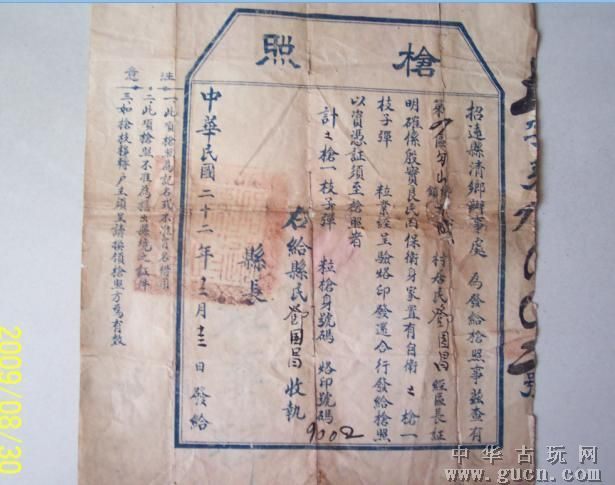 槍照
招遠縣清鄉辦事處 為發給槍照事茲查有
村居民鄧国昌 經區長証
明確係殷實良民因保衛身家置有自衛之槍一
枝子彈 粒業經主驗烙印發還合行發給槍照
以資憑証須至槍照者
計之槍一枝子彈 粒槍身號碼 烙印號碼
9002
右給縣民鄧国昌收執
縣長
中華民國二十二年十二月十三日發給
注意
一、此項槍照為記名式不准冒名借用
二、此項槍照不准為攜出縣境之証件
三、如槍枝移轉戶主須呈請換領槍照方為有效
2009/08/30
中华古玩网
www.gucn.com